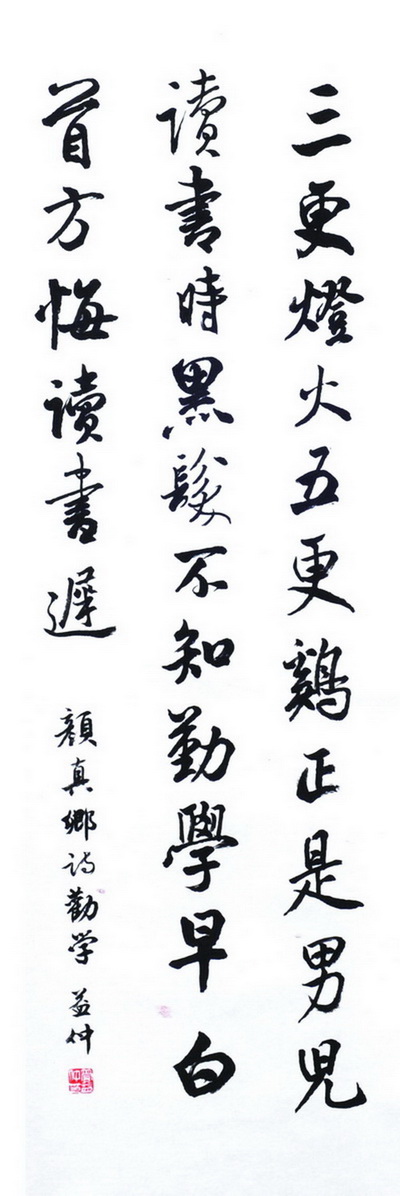 三更燈火五更鷄正是男兒
讀書時黑髮不知勤學早白
首方悔讀書遲
顔真卿詩勸学 益仲